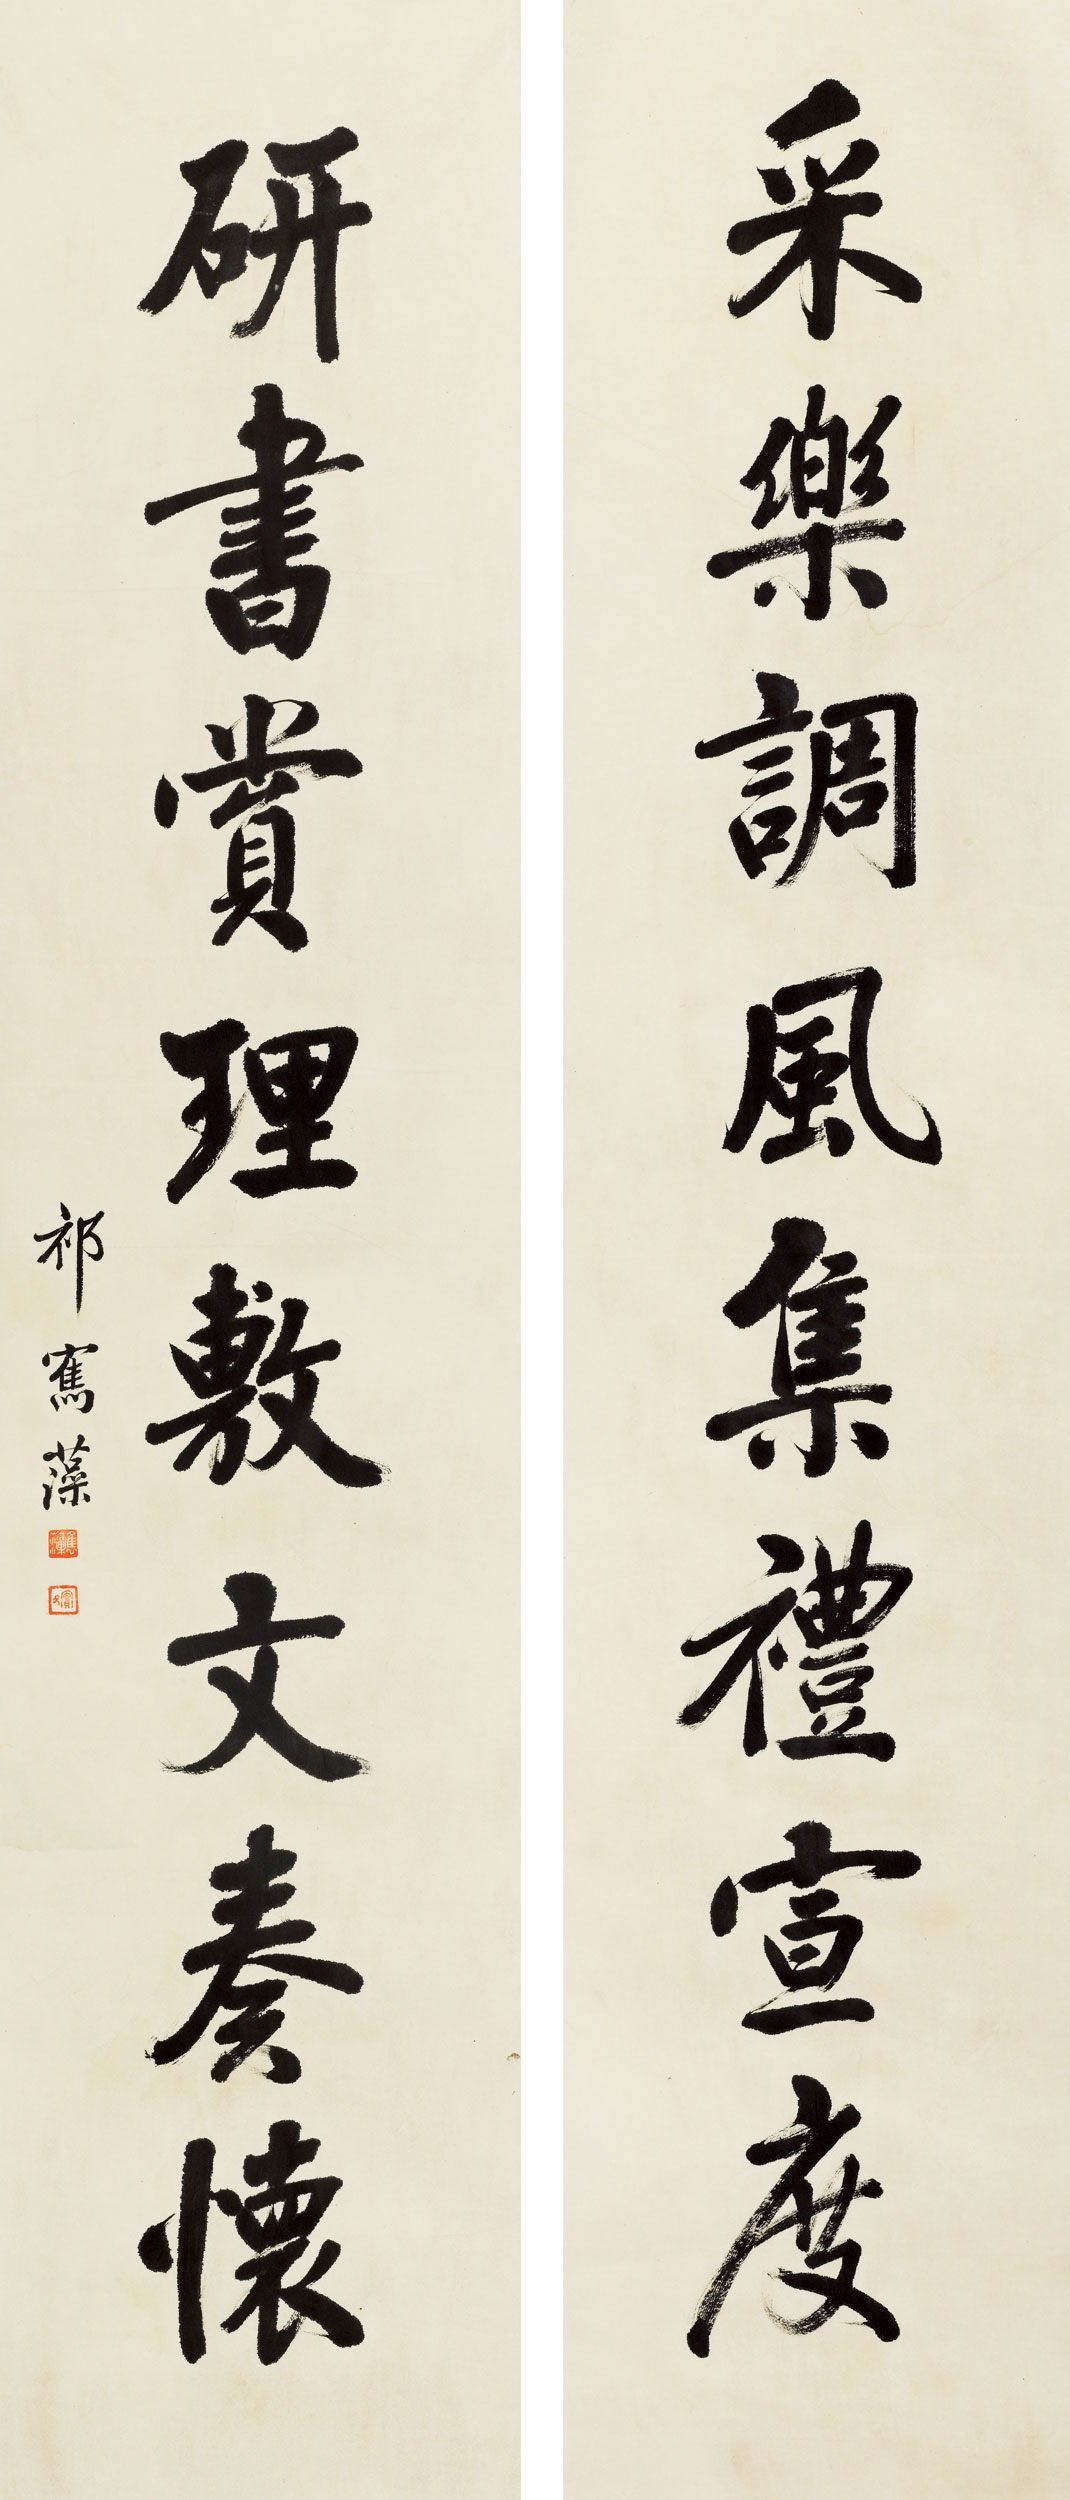 采樂調風集禮宣度
研書賞理敷文奏懷
祁寯藻